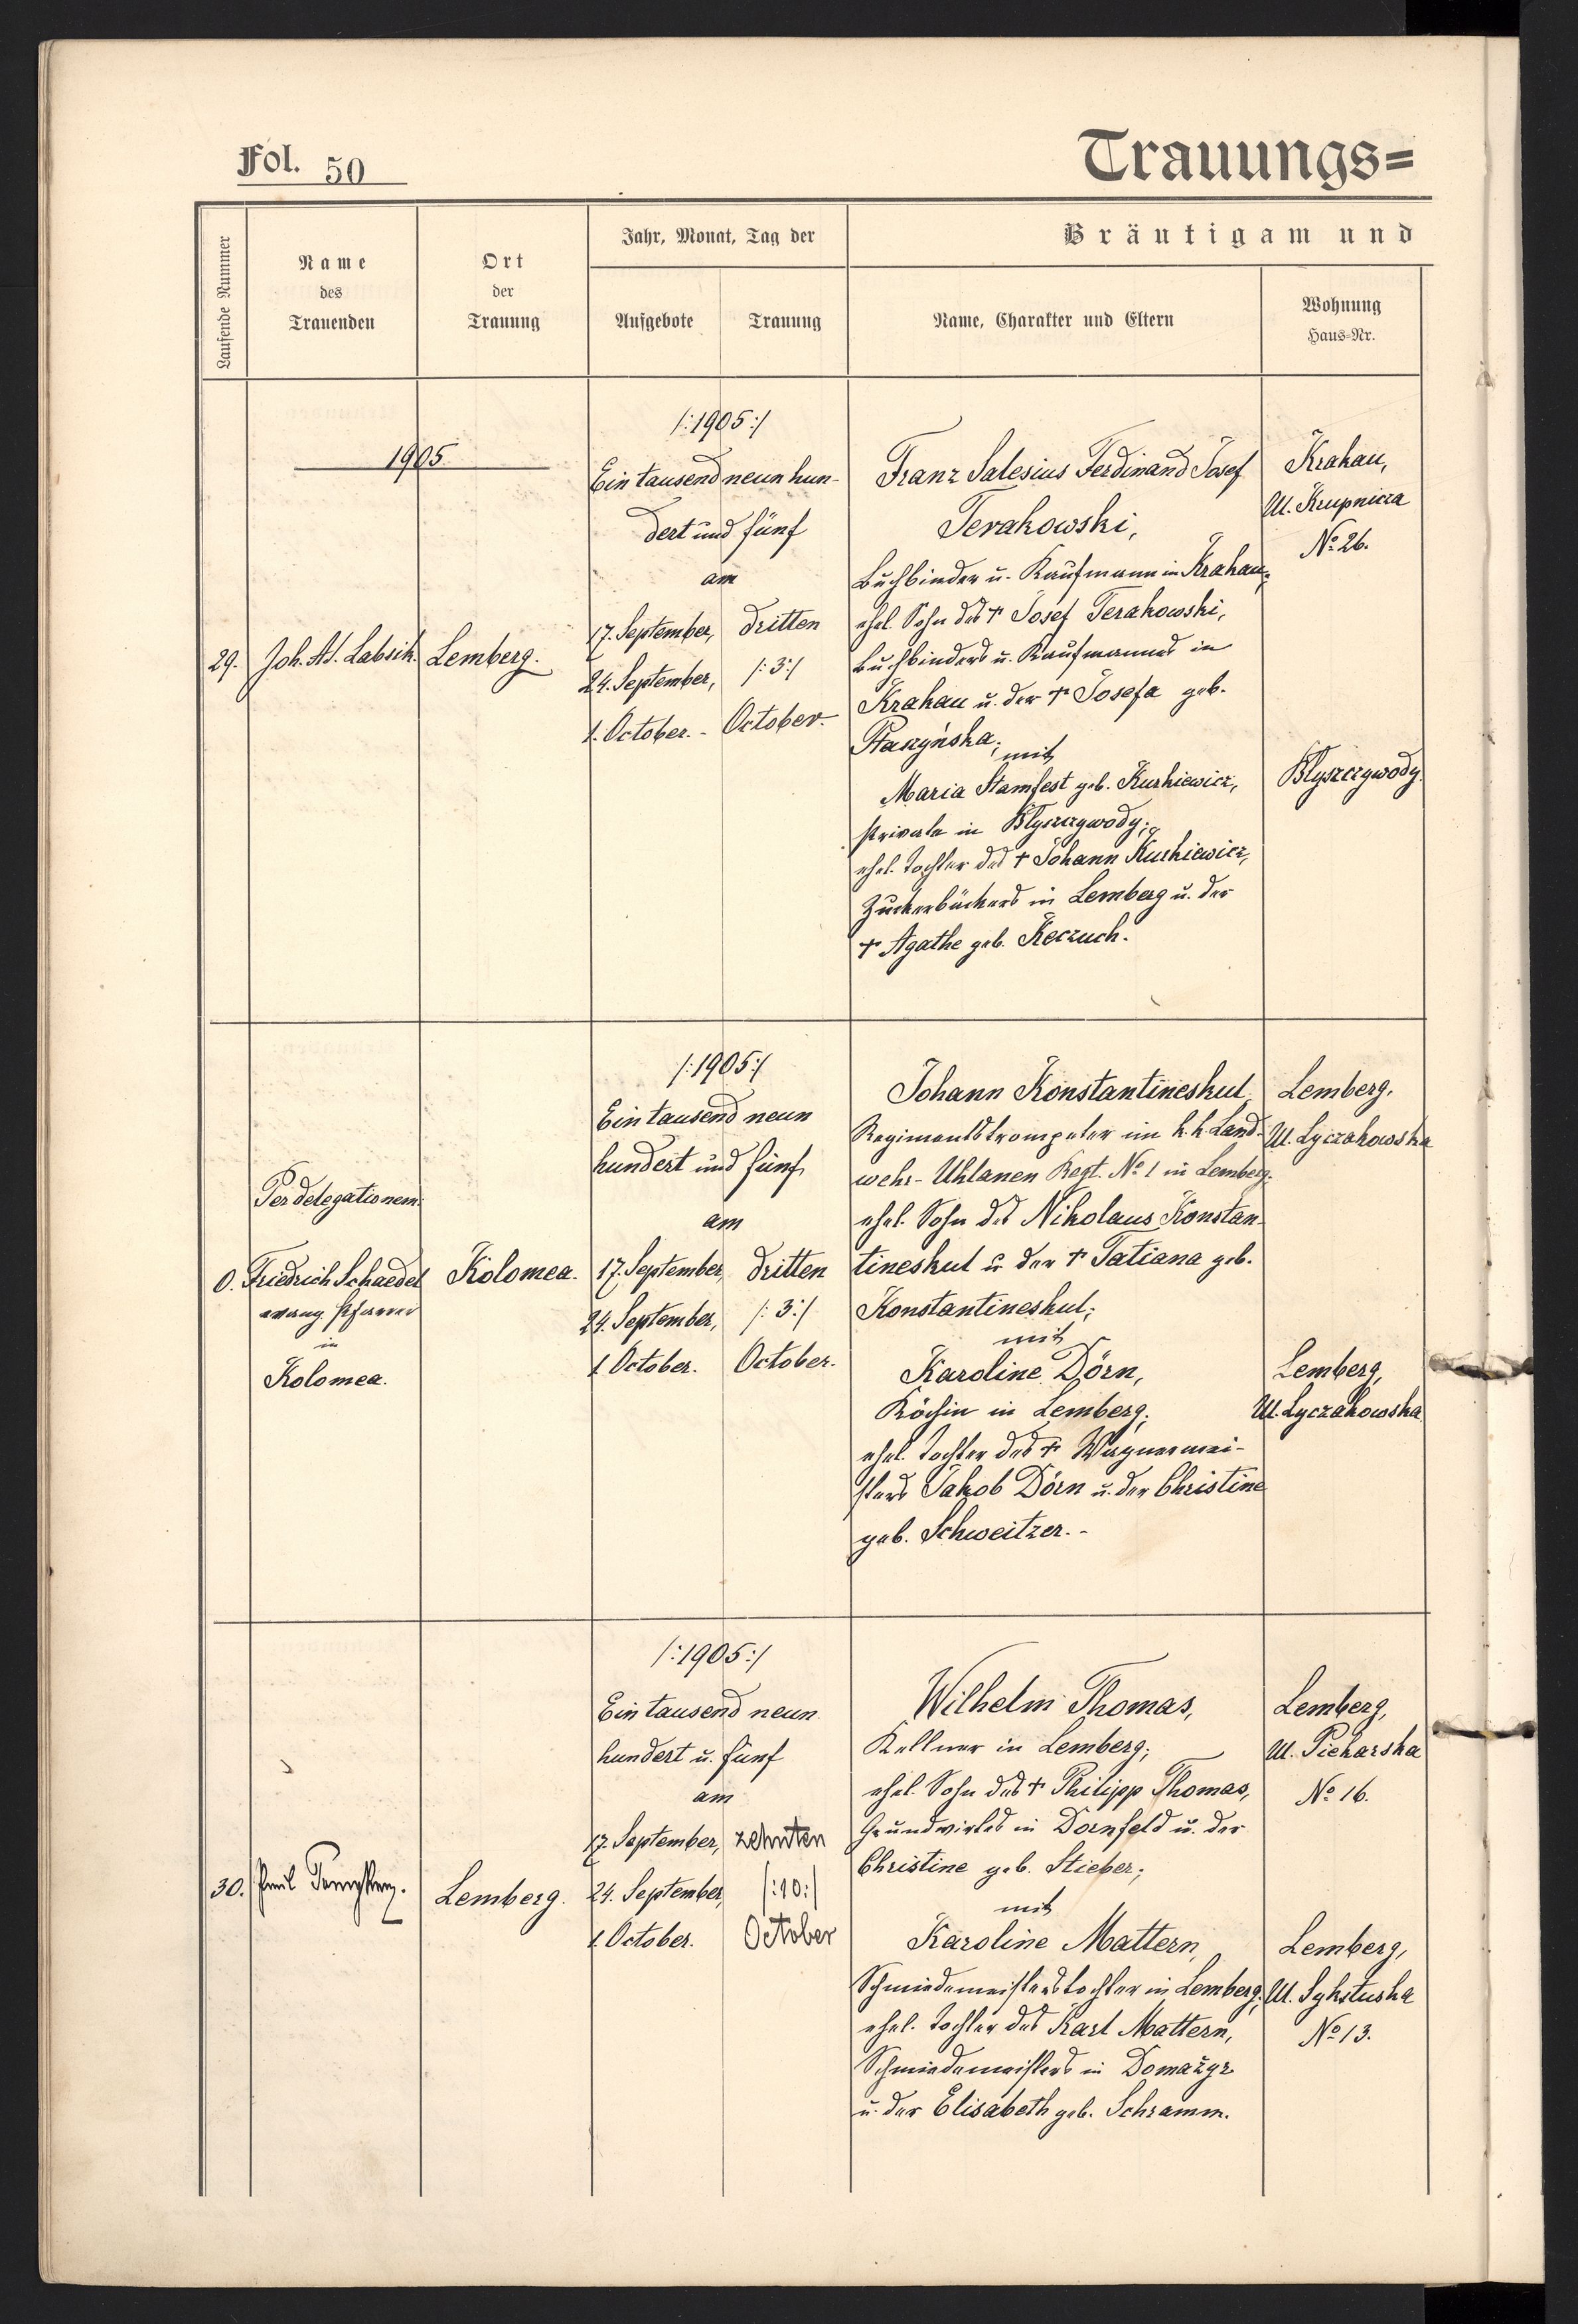 Fol. 50
Trauungs=
Laufende Nummer
Name
des
Trauenden
Ort
der
Trauung
Jahr, Monat, Tag der
Aufgebote
Trauung
Bräutigam und
Name, Charakter und Eltern
Wohnung
Haus=Nr.
1905
29.
Joh. Ad. Labsik.
Lemberg.
/:1905:/
Ein tausend neun hun-
dert und fünf
am
17. September,
24. September,
1. October. -
dritten
/:3:/
October.
Franz Salesius Ferdinand Josef
Terakowski,
Buchbinder u. Kaufmann in Krakau;
ehel. Sohn des † Josef Terakowski,
Buchbinders u. Kaufmannes in
Krakau u. der † Josefa geb.
Ptaszyńska;
mit
Maria Stamfest geb. Kurkiewicz,
Private in Błyszczywody;
ehel. Tochter des † Johann Kurkiewicz,
Zuckerbäckers in Lemberg u. der
† Agathe geb. Keczuch.
Krakau,
Ul. Krupnicza
No. 26.
Błyszczywody.
0.
Per delegationem.
Friedrich Schaedel
evang. Pfarrer
in
Kolomea.
Kolomea.
/:1905:/
Ein tausend neun
hundert und fünf
am
17. September,
24. September,
1. October.
dritten
/:3:/
October.
Johann Konstantineskul,
Regimentstrompeter im k. k. Land-
wehr-Uhlanen Regt. No. 1 in Lemberg.
ehel. Sohn des Nikolaus Konstan-
tineskul u. der † Tatiana geb.
Konstantineskul;
mit
Karoline Dörn,
Köchin in Lemberg;
ehel. Tochter des † Wagnermei-
sters Jakob Dörn u. der Christine
geb. Schweitzer. -
Lemberg,
Ul. Lyczakowska
Lemberg,
Ul. Lyczakowska
30.
Emil
Lemberg.
/:1905:/
Ein tausend neun
hundert u. fünf
am
17. September,
24. September,
1. October.
zehnten
/:10:/
October
Wilhelm Thomas,
Kellner in Lemberg;
ehel. Sohn des † Philipp Thomas,
Grundwirtes in Dornfeld u. der
Christine geb. Stieber;
mit
Karoline Mattern,
Schmiedemeisterstochter in Lemberg;
ehel. Tochter des Karl Mattern,
Schmiedemeisters in Domażyr
u. der Elisabeth geb. Schramm.
Lemberg,
Ul. Piekarska
No. 16.
Lemberg,
Ul. Sykstuska
No. 13.